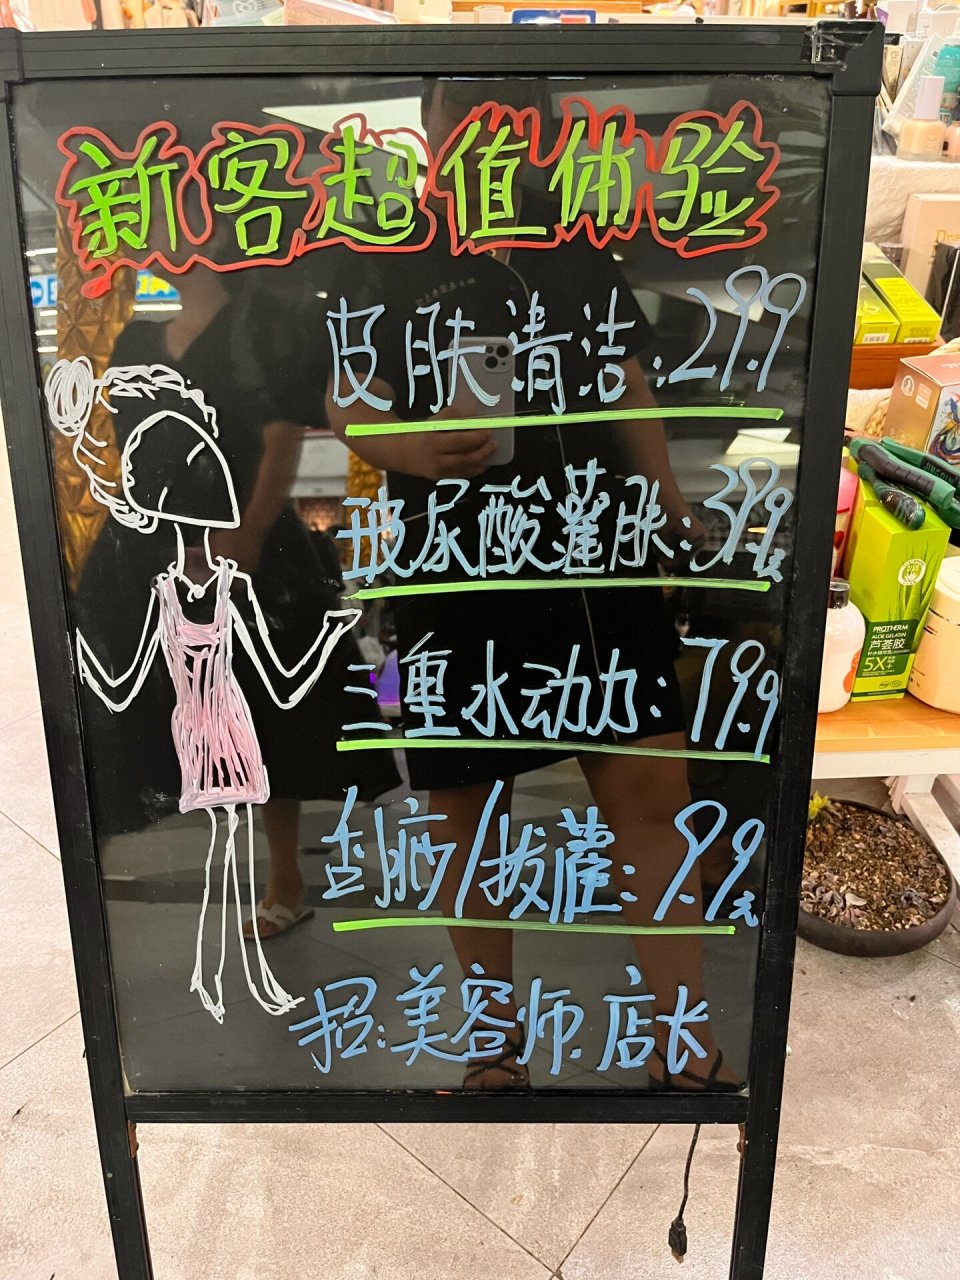 新客超值体验
皮肤清洁:29.9
玻尿酸灌肤:39.9元
三重水动力:79.9
刮痧/拔罐:9.9元
招:美容师.店长
PROTHERM
ALOE GELATIN
芦荟胶
5X+